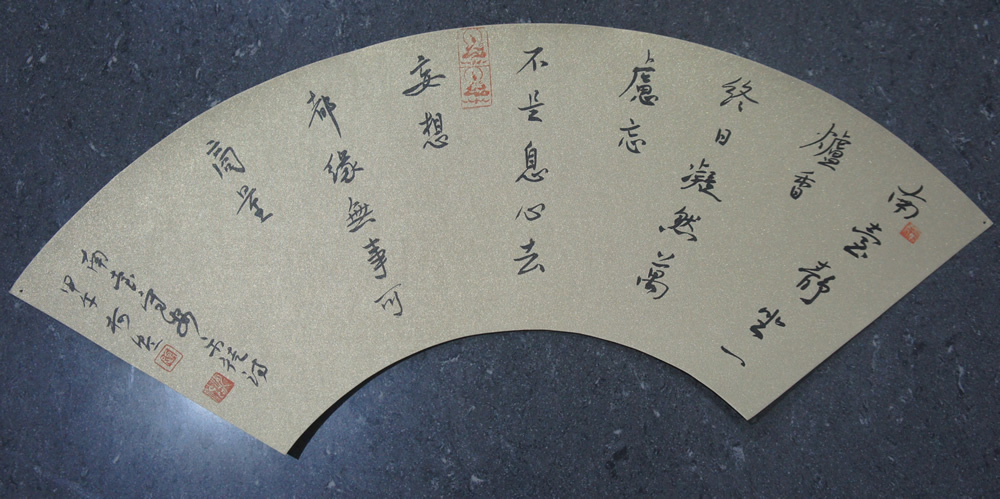 南臺靜坐一
爐香
終日凝然萬
慮忘
不是息心去
妄想
都緣無事可
商量
南臺守安
甲午